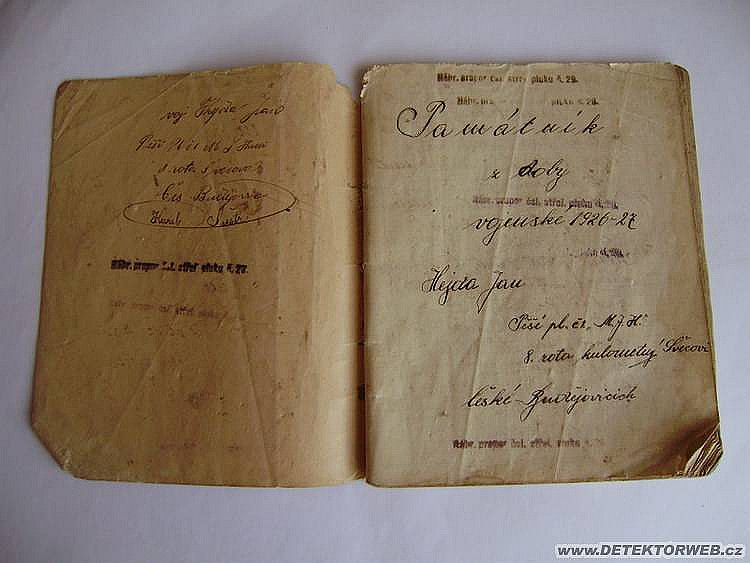 voj Hejda Jan
Pěší
8 rota Švecova
Čes Budějovice
Karel
Náhr. prapor čsl. střel. pluku č. 29.
Náhr. prapor čsl. střel. pluku
Náhr. prapor čsl. střel. pluku č. 29.
Náhr. pra por pluku č. 29.
Památník
z doby
Náhr. prapor čsl. střel. pluku č. 29.
vojenské 1926-27
pluku č. 29.
Hejda Jan
Pěší pl. čs. M. J. H.
8. rota kulometný Švecovi
České-Budějovicích
Náhr. prapor čsl. střel. pluku č. 29.
www.DETEKTORWEB.cz